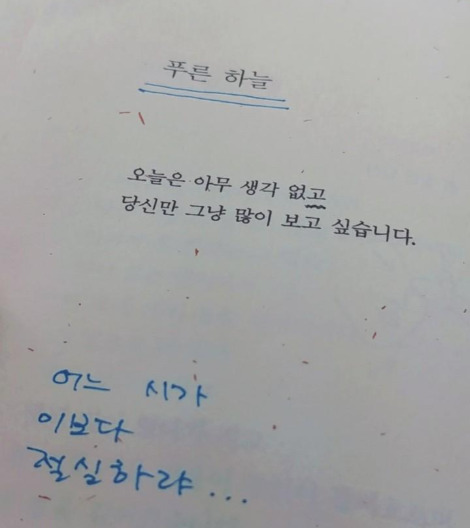 푸른 하늘
오늘은 아무 생각 없고
당신만 그냥 많이 보고 싶습니다.
어느 시가
이보다
절실하랴...